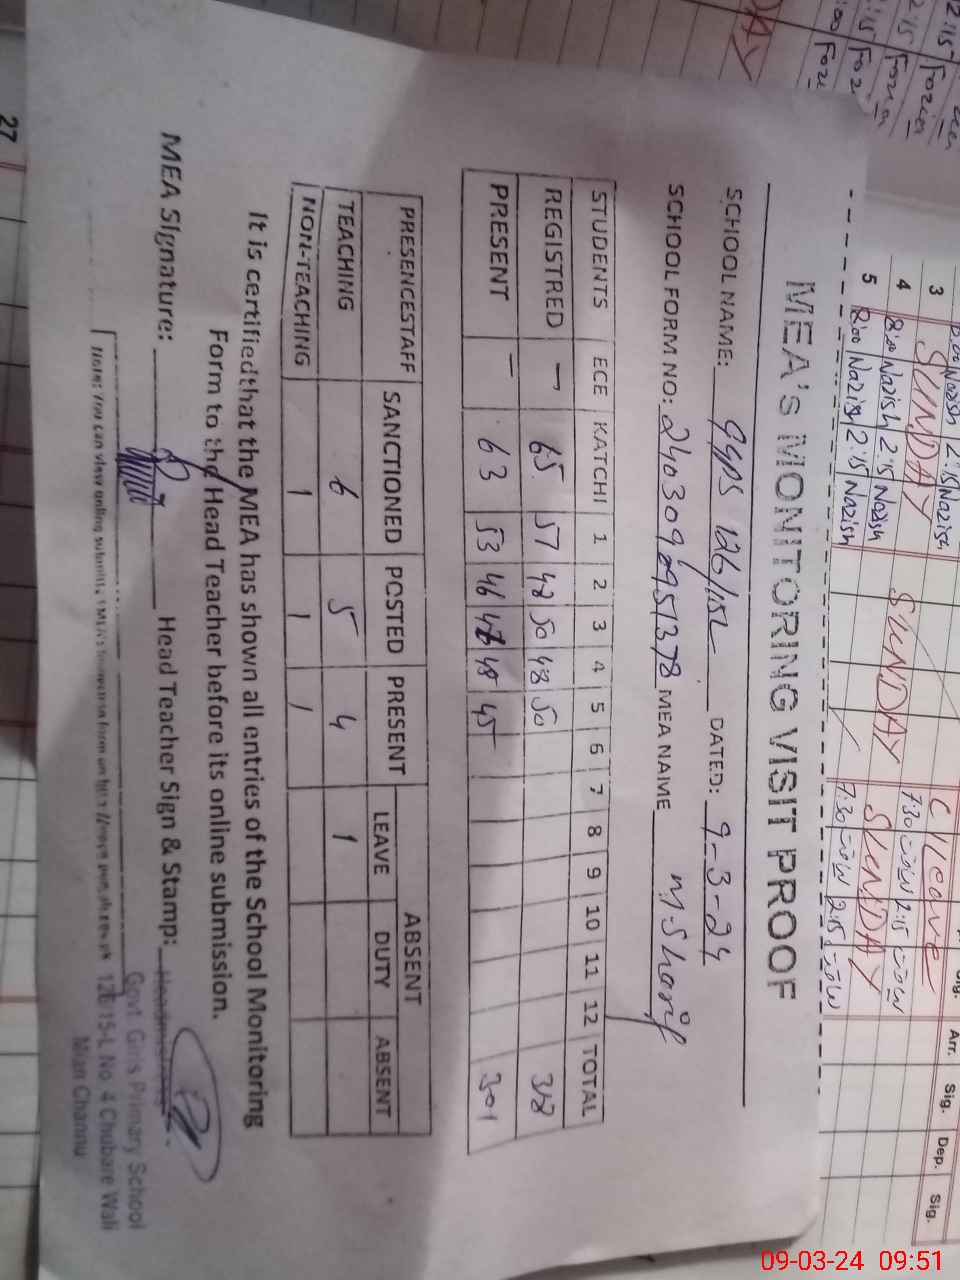 MEA'S MONITORING VISIT PROOF
SCHOOL NAME: GGPS 126/15L DATED: 9-3-24
SCHOOL FORM NO: MEA NAME M. Sharif
STUDENTS ECE KATCHI 1 2 3 4 5 6 7 8 9 10 11 12 TOTAL
REGISTRED - 65 57 48 50 48 50 318
PRESENT - 63 53 46 45 301
PRESENCESTAFF SANCTIONED POSTED PRESENT ABSENT
LEAVE DUTY ABSENT
TEACHING 6 5 4 1
NON-TEACHING 1 1 1
It is certifiedthat the MEA has shown all entries of the School Monitoring
Form to the Head Teacher before its online submission.
MEA Signature: Head Teacher Sign & Stamp:
Note: You can view online
Govt. Girls Primary School
126/15-L No. 4 Chubare Wali
Mian Channu
3 SUNDAY
4 8:00 Nazish 2:15 Nazish SUNDAY C/Leave
7:30 2:15
5 8:00 Nazish 2:15 Nazish SUNDAY
7:30 2:15
Arr. Sig. Dep. Sig.
27
09-03-24 09:51